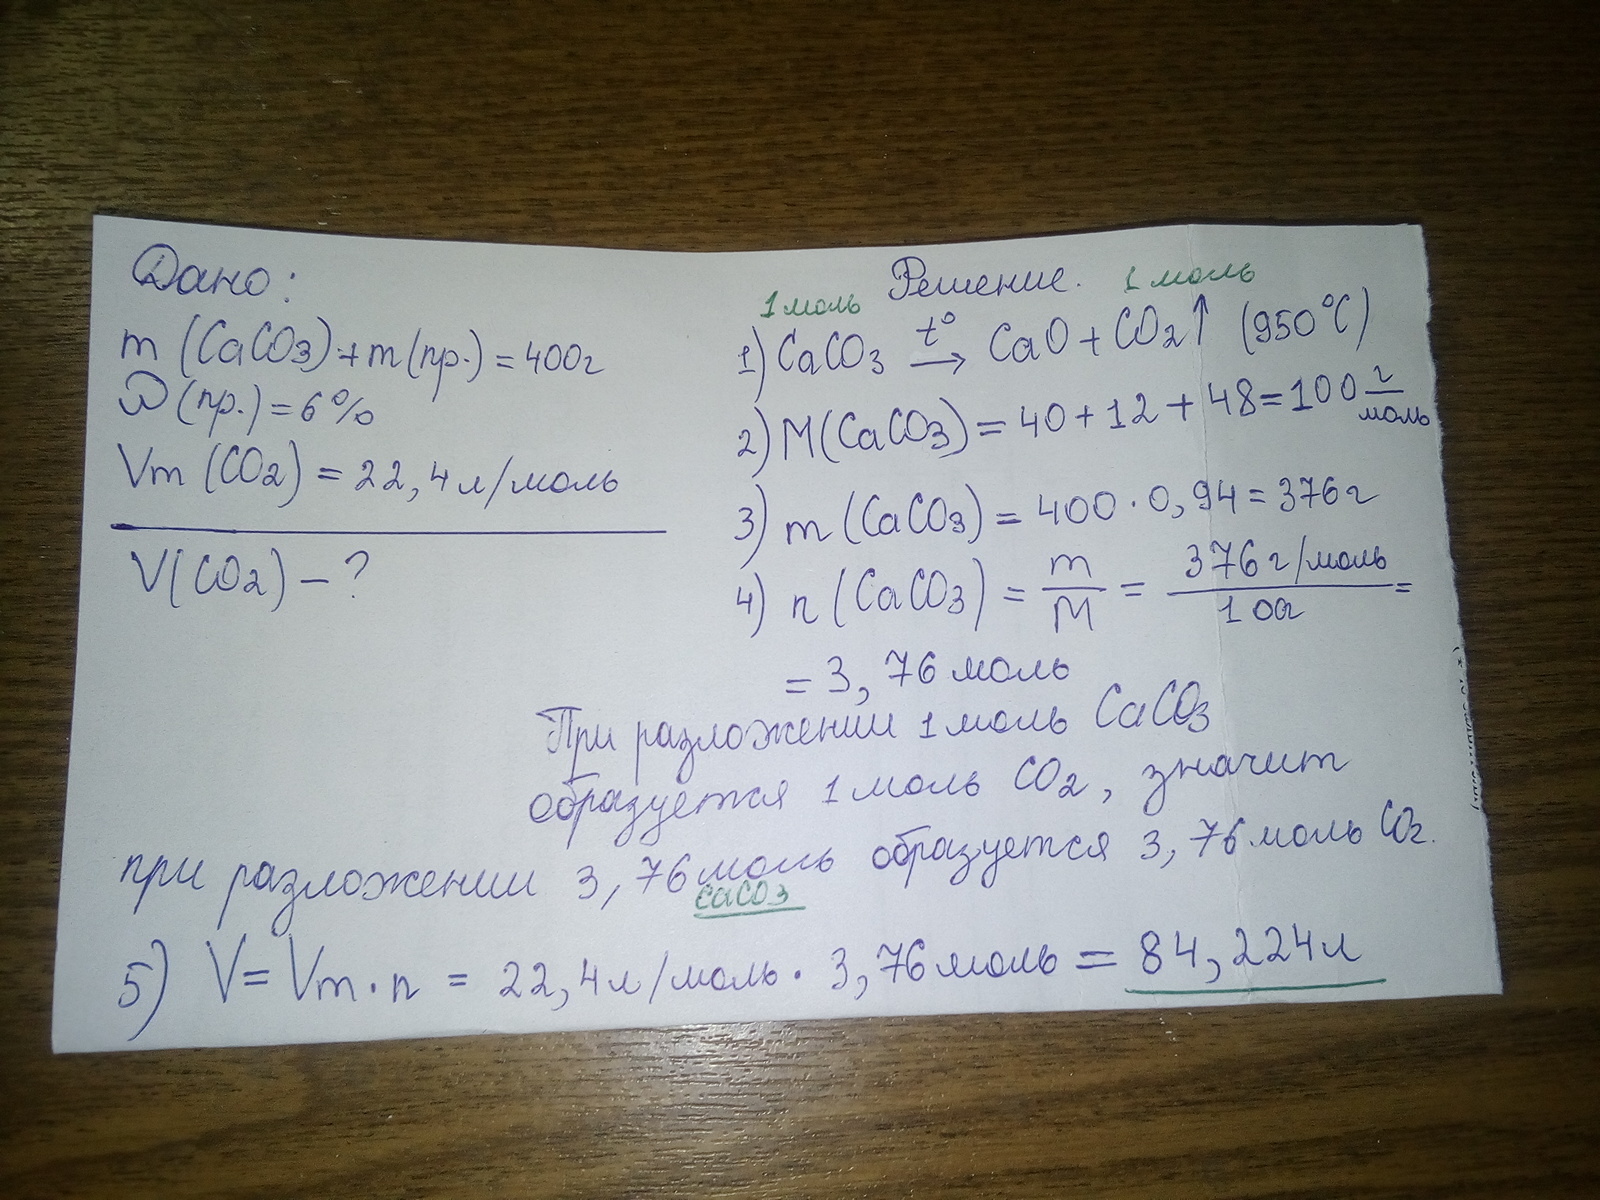 Дано:
m (CaCO3) + m (пр.) = 400г
ω (пр.) = 6%
Vm (CO2) = 22,4 л/моль
V(CO2) – ?
Решение.
1 моль 1 моль
1) CaCO3 t° → CaO + CO2↑ (950°C)
2) M(CaCO3) = 40 + 12 + 48 = 100 г/моль
3) m (CaCO3) = 400 · 0,94 = 376г
4) n (CaCO3) = m/M = 376 г/моль / 100г =
= 3,76 моль
При разложении 1 моль CaCO3
образуется 1 моль CO2, значит
при разложении 3,76 моль образуется 3,76 моль CO2.
CaCO3
5) V = Vm · n = 22,4 л/моль · 3,76 моль = 84,224 л